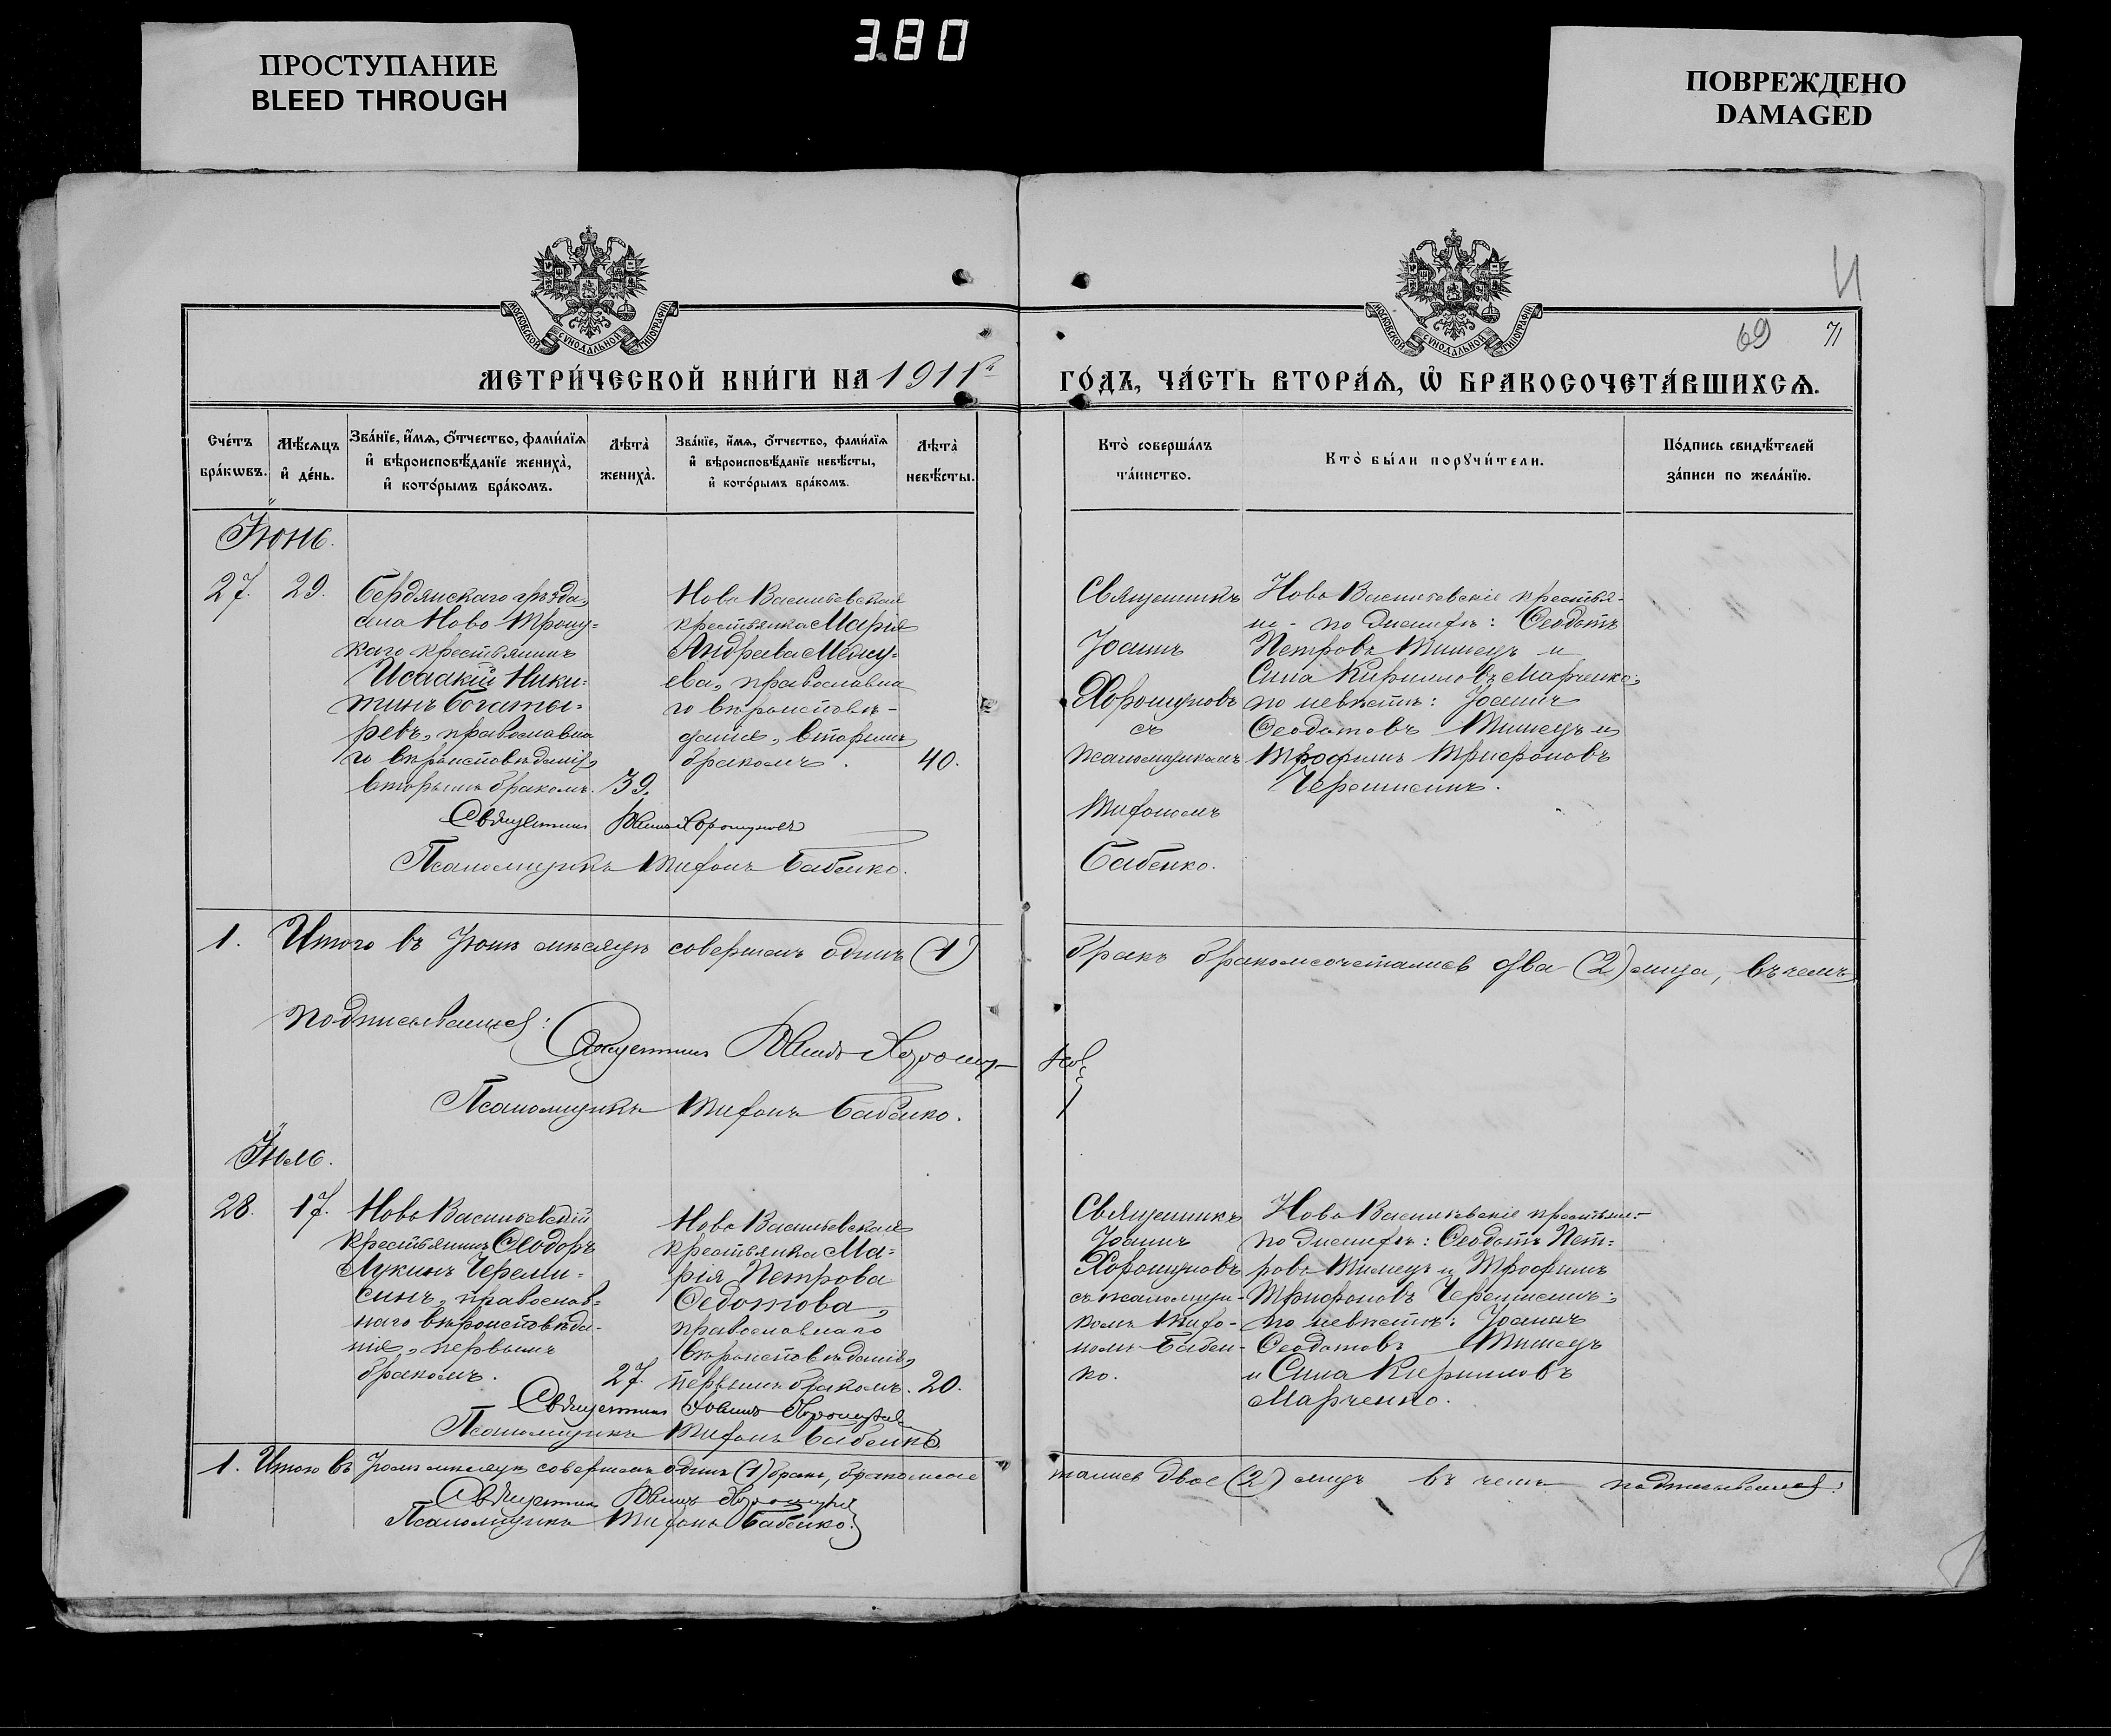 ПРОСТУПАНИЕ
BLEED THROUGH
380
ПОВРЕЖДЕНО
DAMAGED
МОСКОВСКОЙ СѴНОДАЛЬНОЙ ТИПОГРАФІИ
МОСКОВСКОЙ СѴНОДАЛЬНОЙ ТИПОГРАФІИ
69 71
МЕТРИ́ЧЕСКОЙ КНИ́ГИ НА 1911
ГО́ДЪ, ЧА́СТЬ ВТОРА́Ѧ, Ѡ҆ БРАКОСОЧЕТА́ВШИХСѦ.
Сче́тъ бра́кѡвъ.
Мѣ́сѧцъ и҆ де́нь.
Зва́нїе, и҆́мѧ, ѻ҆́тчество, фами́лїѧ и҆ вѣроисповѣ́данїе жениха̀, и҆ кото́рымъ бра́комъ.
Лѣта̀ жениха̀.
Зва́нїе, и҆́мѧ, ѻ҆́тчество, фами́лїѧ и҆ вѣроисповѣ́данїе невѣ́сты, и҆ кото́рымъ бра́комъ.
Лѣта̀ невѣ́сты.
Кто̀ соверша́лъ та́инство.
Кто̀ бы́ли порꙋчи́тели.
По́дпись свидѣ́телей за́писи по жела́нїю.
Іюнь.
27.
29.
Бердянскаго уѣзда,
села Ново Троиц=
каго крестьянинъ
Исаакій Ники=
тинъ Богаты=
ревъ, православна
го вѣроисповѣданія,
вторымъ бракомъ.
39.
Ново Васильевская
крестьянка Марія
Андреева
ева, православна
го вѣроисповѣ-
данія, вторымъ
бракомъ.
40.
Священникъ
Іоаннъ
Хорошуновъ
съ
псаломщикомъ
Тифономъ
Бабенко.
Ново Васильевскіе крестья-
не - по женихѣ: Ѳеодотъ
Петровъ Тишецъ и
Сила Кирилловъ Марченко;
по невѣстѣ: Іоаннъ
Ѳеодотовъ Тишецъ и
Трофимъ Трифоновъ
Черемисинъ.
Священникъ Іоаннъ Хорошуновъ
Псаломщикъ Тифонъ Бабенко.
1. Итого въ Іюнѣ мѣсяцѣ совершенъ одинъ (1)
бракъ бракомсочетались два (2) лица, въ чемъ
подписываемся:
Священникъ Іоаннъ Хорошу-
новъ
Псаломщикъ Тифонъ Бабенко.
Іюль.
28.
17.
Ново Васильевскій
крестьянинъ Ѳеодоръ
Лукинъ Череми=
синъ, православ=
наго вѣроисповѣда-
нія, первымъ
бракомъ.
27.
Ново Васильевская
крестьянка Ма=
рія Петрова
Ѳедотова,
православнаго
вѣроисповѣданія,
первымъ бракомъ.
20.
Священникъ
Іоаннъ
Хорошуновъ
съ псаломщи-
комъ Тифо-
номъ Бабен-
ко.
Ново Васильевскіе крестьяне-
по женихѣ: Ѳеодотъ Пет=
ровъ Тишецъ и Трофимъ
Трифоновъ Черемисинъ;
по невѣстѣ: Іоаннъ
Ѳеодотовъ Тишецъ
и Сила Кирилловъ
Марченко.
Священникъ Іоаннъ Хорошуновъ
Псаломщикъ Тифонъ Бабенко
1. Итого въ Іюлѣ мѣсяцѣ совершенъ одинъ (1) бракъ, бракомсоче
тались двое (2) лицъ въ чемъ подписываемся:
Священникъ Іоаннъ Хорошуновъ
Псаломщикъ Тифонъ Бабенко.